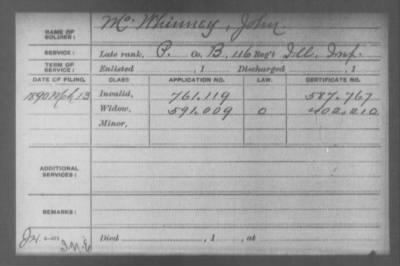 NAME OF SOLDIER: Mc Whinney, John
SERVICE: Late rank, P. Co. B, 116 Reg't Ill. Inf.
TERM OF SERVICE: Enlisted , 1 Discharged , 1
DATE OF FILING. CLASS APPLICATION NO. LAW. CERTIFICATE NO.
1890 Mch, 13 Invalid, 761.119 587.767
Widow, 591.009 O 402.210
Minor,
ADDITIONAL SERVICES:
REMARKS:
Died , 1 , at